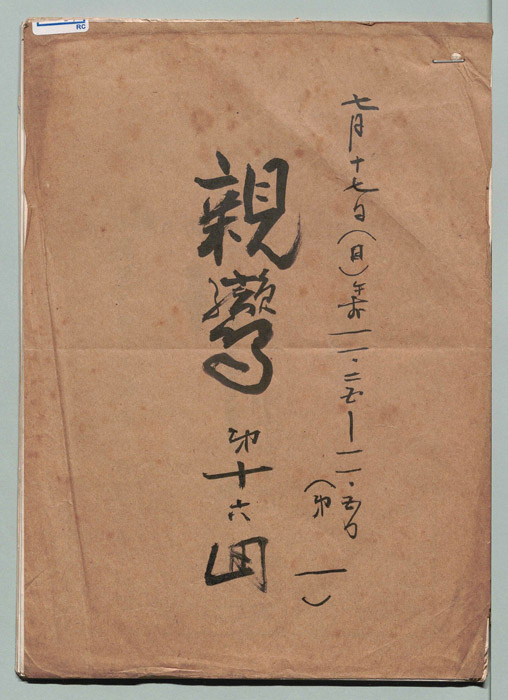 七月十七日(日)午前一一・二五ー一一・五〇
(第一)
親鸞 第十六回
RC